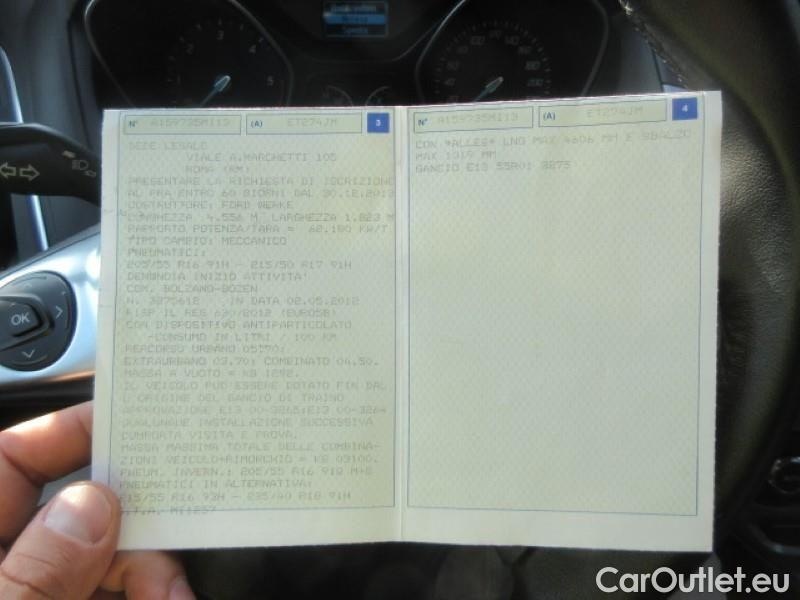 N° A159735M113 (A) ET274JM 3
SEDE LEGALE
VIALE A.MARCHETTI 105
ROMA (RM)
PRESENTARE LA RICHIESTA DI ISCRIZIONE
AL PRA ENTRO 60 GIORNI DAL 30.12.2013
COSTRUTTORE: FORD WERKE
LUNGHEZZA 4.556 M LARGHEZZA 1.823 M
RAPPORTO POTENZA/TARA = 62.180 KW/T
TIPO CAMBIO: MECCANICO
PNEUMATICI:
205/55 R16 91H - 215/50 R17 91H
DENUNCIA INIZIO ATTIVITA'
COM. BOLZANO-BOZEN
N. 3275612 IN DATA 02.05.2012
RISP IL REG 630/2012 (EURO5B)
CON DISPOSITIVO ANTIPARTICOLATO
-CONSUMO IN LITRI / 100 KM
PERCORSO URBANO 05.70;
EXTRAURBANO 03.70; COMBINATO 04.50.
MASSA A VUOTO = KG 1292.
IL VEICOLO PUO' ESSERE DOTATO FIN DAL
L'ORIGINE DEL GANCIO DI TRAINO
APPROVAZIONE E13 00-3265;E13 00-3264
QUALUNQUE INSTALLAZIONE SUCCESSIVA
COMPORTA VISITA E PROVA.
MASSA MASSIMA TOTALE DELLE COMBINA-
ZIONI VEICOLO+RIMORCHIO = KG 03100.
PNEUM. INVERN.: 205/55 R16 91Q M+S
PNEUMATICI IN ALTERNATIVA:
215/55 R16 93H - 235/40 R18 91H
N° A159735M113 (A) ET274JM 4
CON *ALLEG* LNG MAX 4606 MM E SBALZO
MAX 1019 MM
GANCIO E13 55R01 3275
OK
CarOutlet.eu